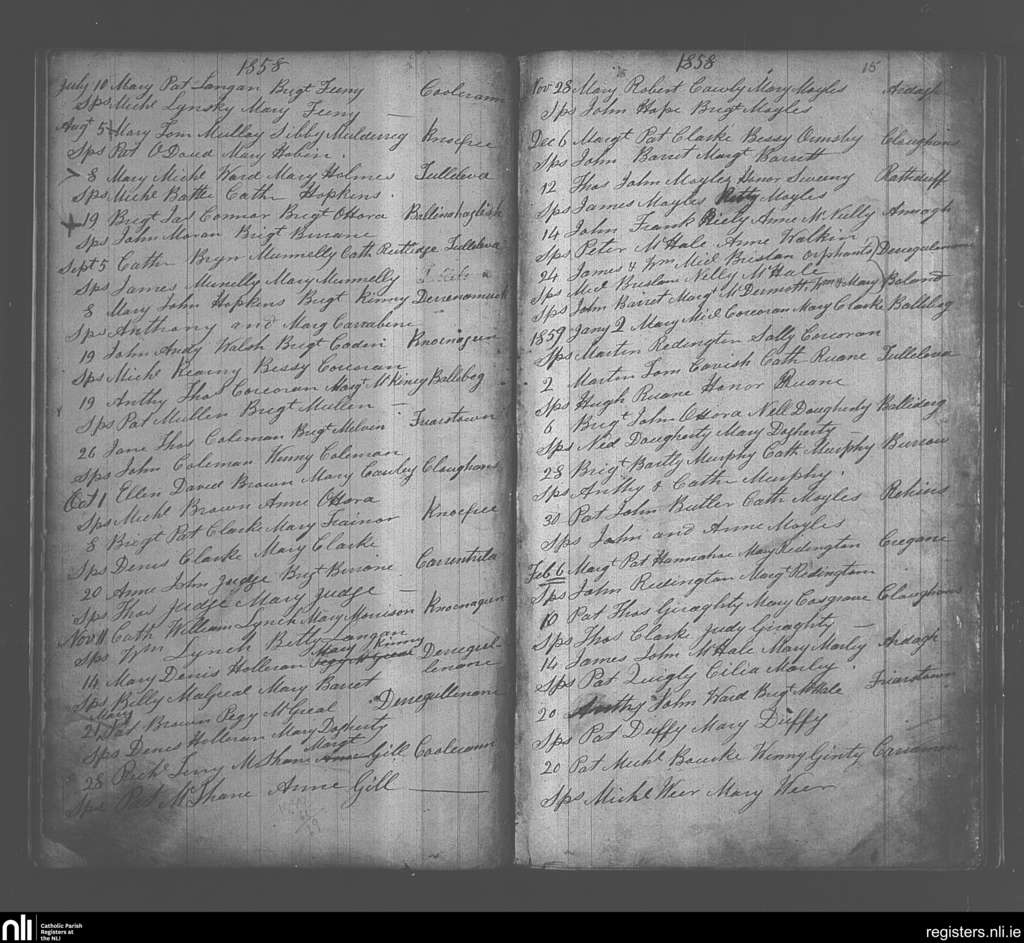 1858
July 10 Mary Pat Langan Brigt Feeny Coolcarin
Sps Michl Lynsky Mary Feeny
Augt 5 Mary Tom Mullay Sibby Muldereg Knocfree
Sps Pat O Doud Mary Hobin
8 Mary Michl Ward Mary Holmes Tulleleva
Sps Michl Battle Cath Hopkins
19 Brigt Jas Connor Brigt OHora Ballinshaghish
Sps John Moran Brigt Burane
Sept 5 Cath Bryn Munnelly Cath Rutledge Tulleleva
Sps James Munelly Mary Munnelly
8 Mary John Hopkins Brigt Kinny Derrenamuck
Sps Anthony and Mary Carrabine
19 John Andy Walsh Brigt Coden Knocnagun
Sps Michl Kearny Bessy Corcoran
19 Anthy Thos Corcoran Margt McKiney Ballebog
Sps Pat Mullen Brigt Mullen
26 Jane Thos Coleman Brigt Melvin Friarstown
Sps John Coleman Winny Coleman
Oct 1 Ellen David Brown Mary Cawley Cloughans
Sps Michl Brown Anne OHora
8 Brigt Pat Clarke Mary Trainor Knocfree
Sps Denis Clarke Mary Clarke
20 Anne John Judge Brigt Burane Carrentrila
Sps Thos Judge Mary Judge
Nov 11 Cath William Lynch Mary Morrison Knocnagun
Sps Wm Lynch Betty Langan
Mary Kinny
14 Mary Denis Holleran Peggy McGreal Deregul-
Sps Billy McGreal Mary Barret lenane
Mary
21 Pat Brown Pegy McGreal Deregullenane
Sps Denis Holleran Mary Dogherty
Margt
28 Richd Terry McShane Anne Gill Coolcarin
Sps Pat McShane Anne Gill
1858
15
Nov 28 Mary Robert Cawly Mary Mayles Ardagh
Sps John Hope Brigt Mayles
Dec 6 Margt Pat Clarke Bessy Ormsby Cloughans
Sps John Barret Margt Barrett
12 Thos John Mayles Honor Sweeny Rathduff
Sps James Mayles Kitty Mayles
14 John Frank Riely Anne McNully Annagh
Sps Peter McHale Anne Walkin
24 James & Wm Micl Brislan Orphants Deregulenane
Sps Micl Brislan Nelly McHale
Sps John Barret Margt McDermott Wm & Mary Boland
1859 Jany 2 Mary Micl Corcoran Mary Clarke Ballebog
Sps Martin Redington Sally Corcoran
2 Martin Tom Cavish Cath Ruane Tulleleva
Sps Hugh Ruane Honor Ruane
6 Brigt John OHora Nell Daugherty Ballederg
Sps Ned Daugherty Mary Dogherty
28 Brigt Bartly Murphy Cath Murphy
Sps Anthy & Cath Murphy
30 Pat John Butler Cath Mayles Rehins
Sps John and Anne Mayles
Feb 6 Margt Pat Hannahoe Mary Redington Creggane
Sps John Redington Margt Redington
10 Pat Thos Giraghty Mary Cosgrave Cloughans
Sps Thos Clarke Judy Giraghty
14 James John McHale Mary Marley Ardagh
Sps Pat Quigly Cilia Marley
20 Anthy John Ward Brigt McHale Friarstown
Sps Pat Duffy Mary Duffy
20 Pat Michl Bourke Winny Ginty
Sps Michl Weer Mary Weer
nli
Catholic Parish
Registers at
the NLI
registers.nli.ie